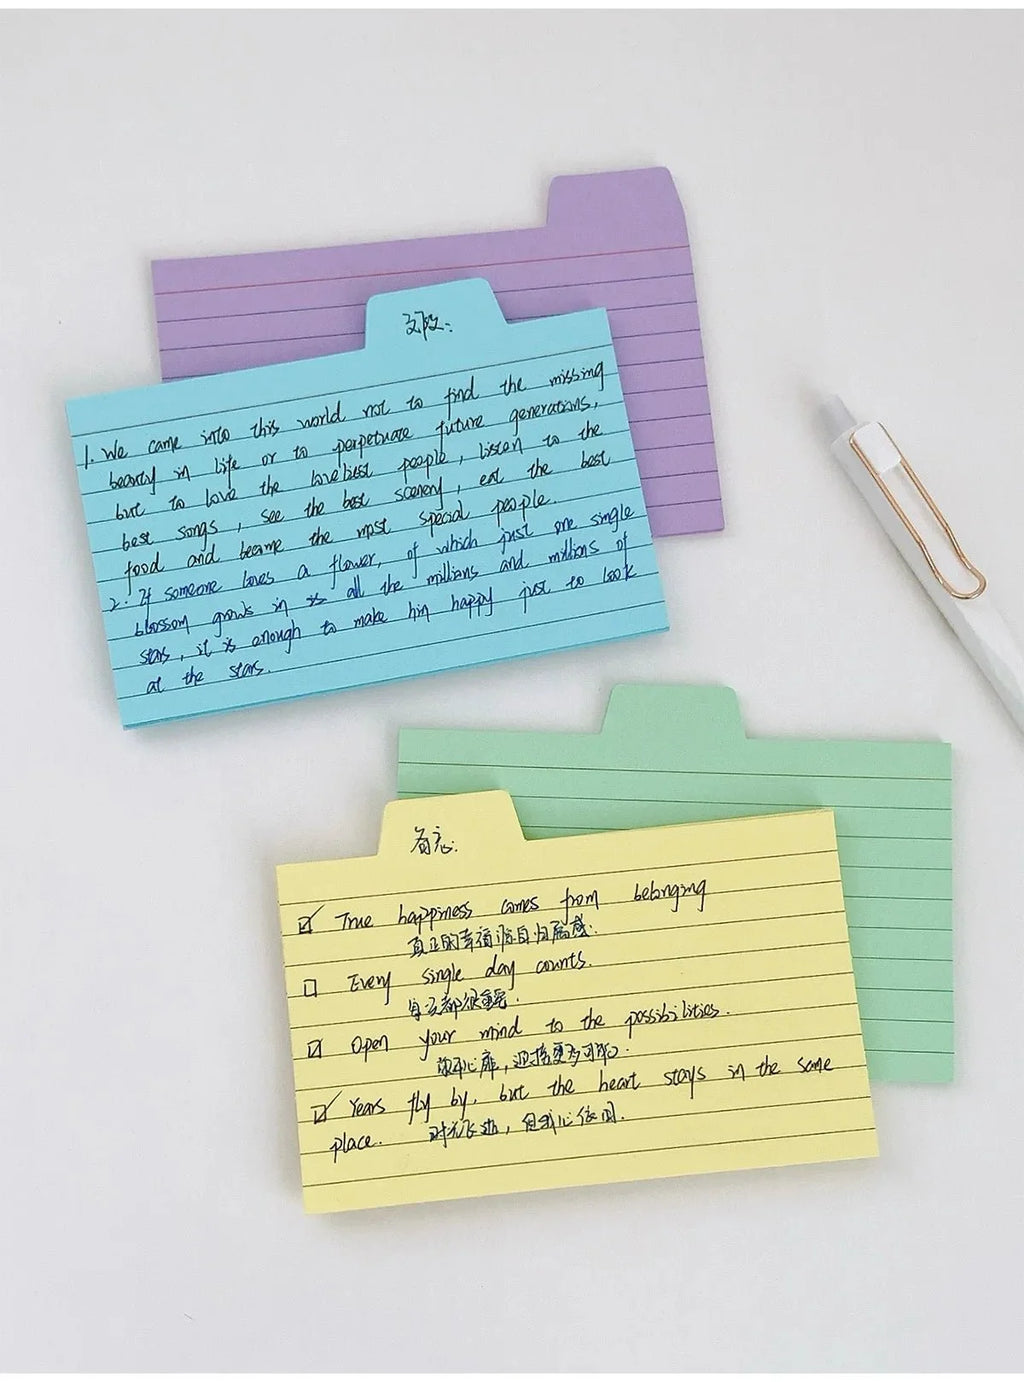 文段:
1. We came into this world not to find the missing
beauty in life or to perpetuate future generations,
but to love the loveliest people, listen to the
best songs, see the best scenery, eat the best
food and become the most special people.
2. If someone loves a flower, of which just one single
blossom grows in is all the millions and millions of
stars, it is enough to make him happy just to look
at the stars.
备忘:
True happiness comes from belonging
真正的幸福源自归属感.
Every single day counts.
每天都很重要.
Open your mind to the possibilities.
敞开心扉,迎接更多可能.
Years fly by, but the heart stays in the same
place. 时光飞逝,但我心依旧.